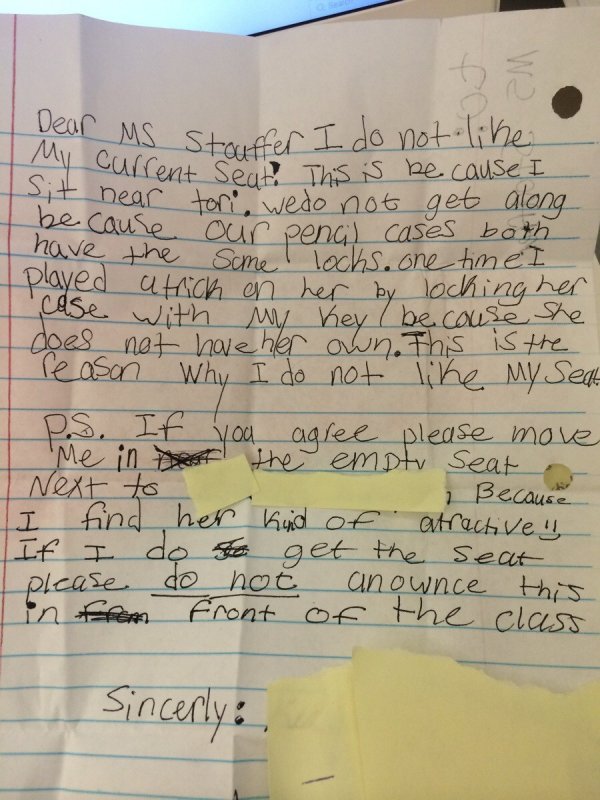 Dear MS Stouffer I do not like
My current Seat! This is because I
Sit near tori. we do not get along
because our pencil cases both
have the same locks. one time I
played a trick on her by locking her
case with My key because She
does not have her own. This is the
reason why I do not like My Seat
P.S. If you agree please move
Me in the empty Seat
Next to
Because
I find her kind of atractive!!
If I do get the seat
please do not anownce this
in front of the class
Sincerly: